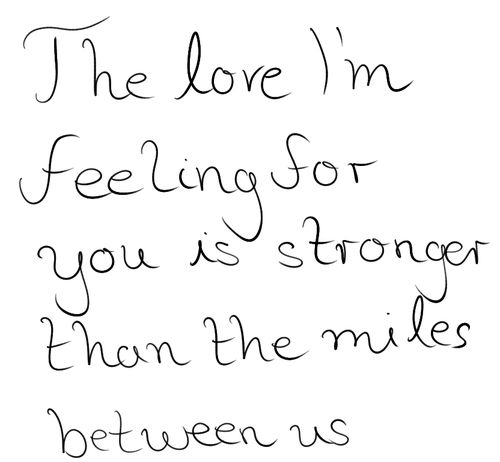 The love I'm
feeling for
you is stronger
than the miles
between us